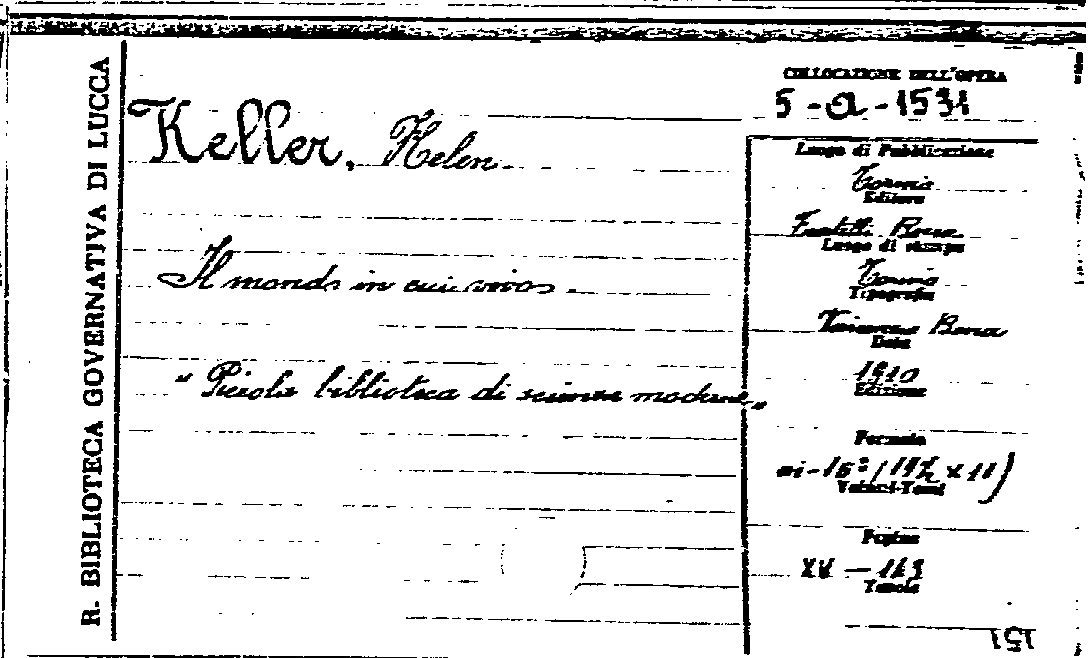 R. BIBLIOTECA GOVERNATIVA DI LUCCA
COLLOCAZIONE DELL'OPERA
5-a-1531
Keller, Helen
Il mondo in cui vivo.
"Piccola biblioteca di scienze moderne"
Luogo di Pubblicazione
Torino
Editore
Fratelli Bocca
Luogo di stampa
Torino
Tipografia
Vincenzo Bona
Data
1910
Edizione
Formato
in-16° (19½ x 11)
Volumi-Tomi
Pagine
XV — 163
Tavole
151